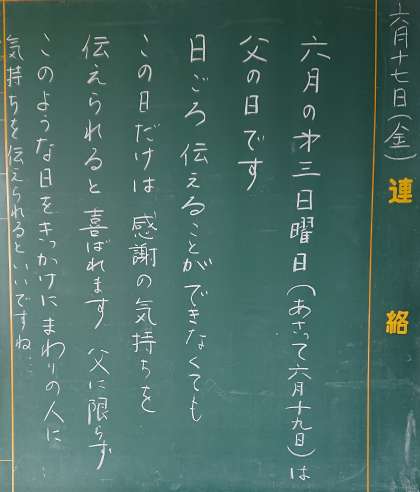 六月十七日(金)
連絡
六月の才三日曜日(あさって六月十九日)は
父の日です
日ごろ伝えることができなくても
この日だけは感謝の気持ちを
伝えられると喜ばれます 父に限らず
このような日をきっかけにまわりの人に
気持ちを伝えられるといいですね…